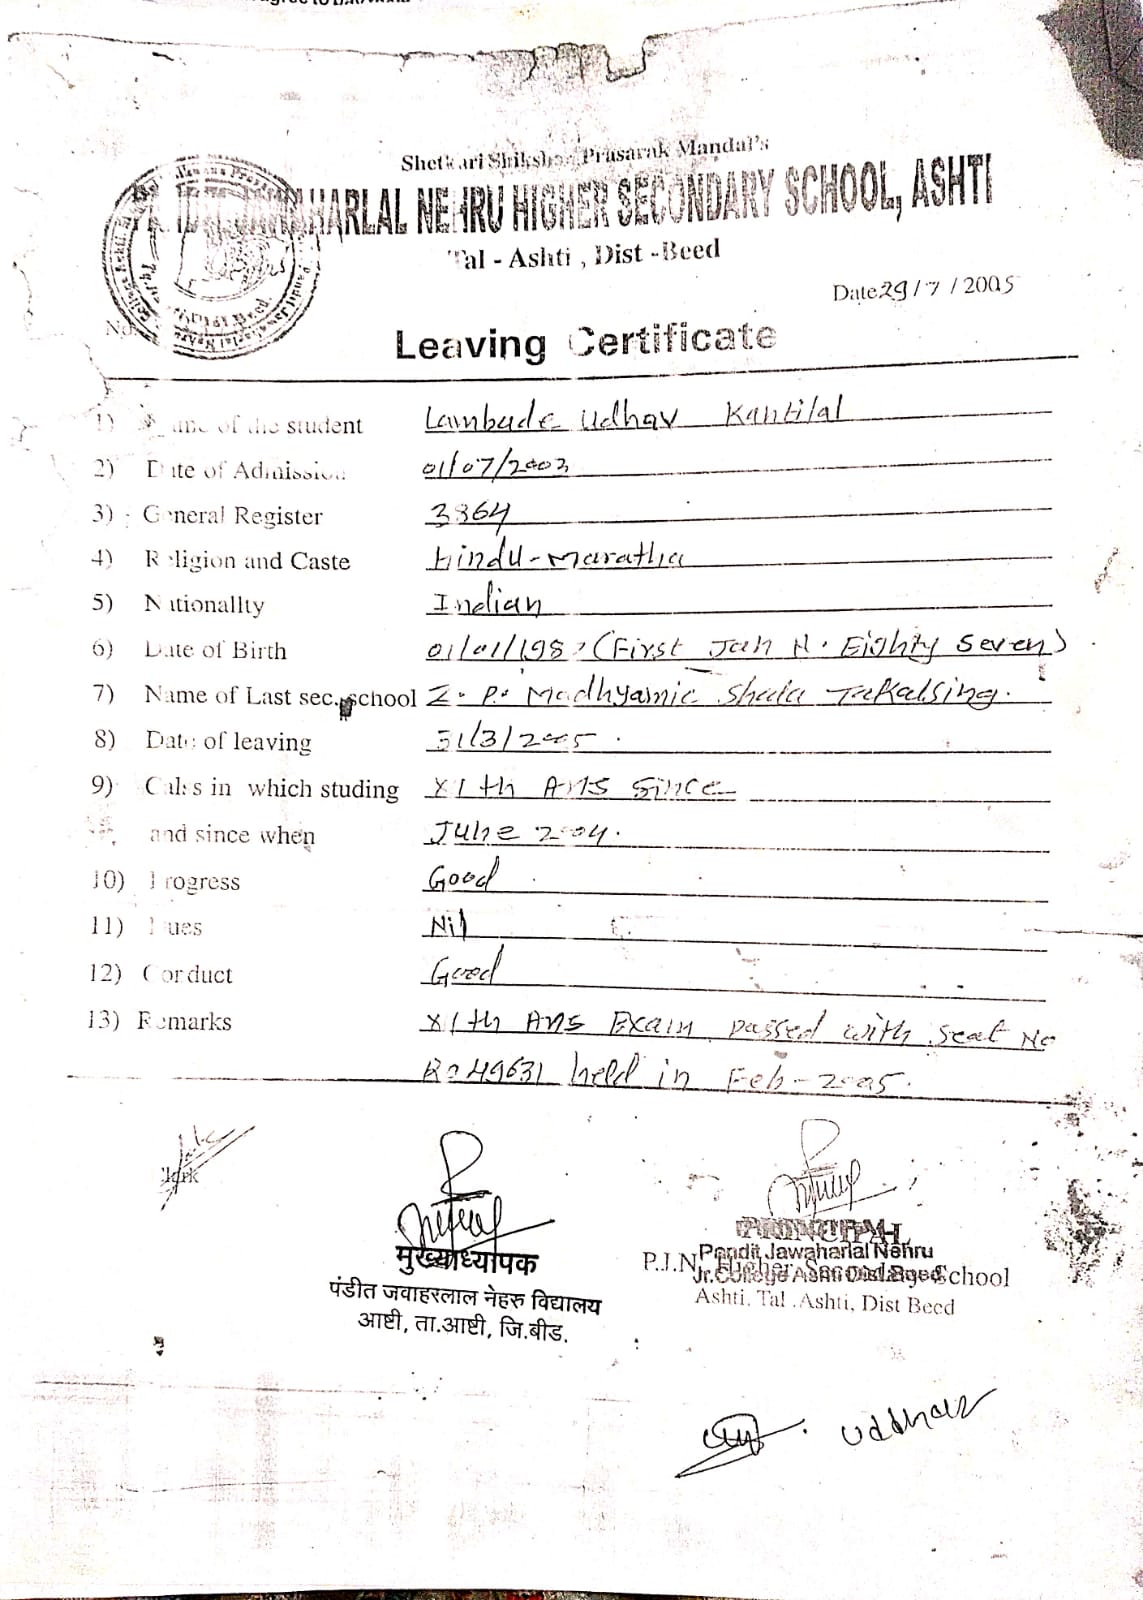 Shetkari Shikshan Prasarak Mandal's
JAWAHARLAL NEHRU HIGHER SECONDARY SCHOOL, ASHTI
Tal - Ashti , Dist -Beed
Date 29 / 7 / 2005
No.
Leaving Certificate
1) Name of the student Lambude Udhav Kantilal
2) Date of Admission 01/07/2003
3) General Register 3864
4) Religion and Caste Hindu-Maratha
5) Nationallty Indian
6) Date of Birth 01/01/1987 (First Jan N. Eighty Seven)
7) Name of Last sec. school Z. P. Madhyamic Shala Takalsing.
8) Date of leaving 31/3/2005.
9) Calss in which studing XIth Arts Since
and since when June 2004.
10) Progress Good
11) Dues Nil
12) Conduct Good
13) Remarks XIth Arts Exam passed with seat No
R049631 held in Feb-2005.
Clerk
मुख्याध्यापक
पंडीत जवाहरलाल नेहरु विद्यालय
आष्टी, ता.आष्टी, जि.बीड.
PRINCIPAL
Pandit Jawaharlal Nehru
Jr.College Ashti Dist.Beed
P.J.N. Higher Secondary School
Ashti, Tal .Ashti, Dist Beed
Uddhav